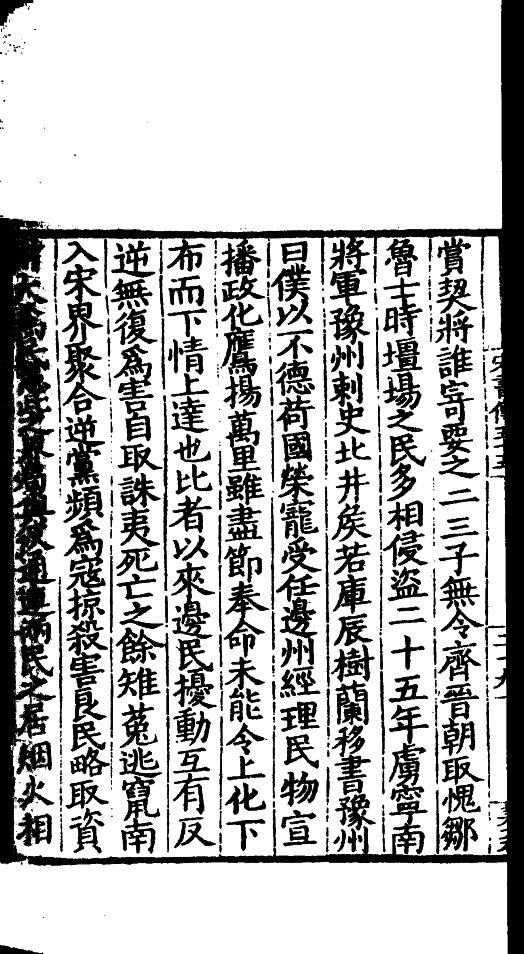 賞契將誰寄要之二三子無令齊晉朝取愧鄒
魯士時壇場之民多相侵盜二十五年虜寧南
將軍豫州刺史北井侯若庫辰樹蘭移書豫州
曰僕以不德荷國榮寵受任邊州經理民物宣
播政化鷹揚萬里雖盡節奉命未能令上化下
布而下情上達也比者以來邊民擾動互有反
逆無復爲害自取誅夷死亡之餘雉菟逃竄南
入宋界聚合逆黨頻爲寇掠殺害良民略取資
大爲民通連兩民之居烟火相